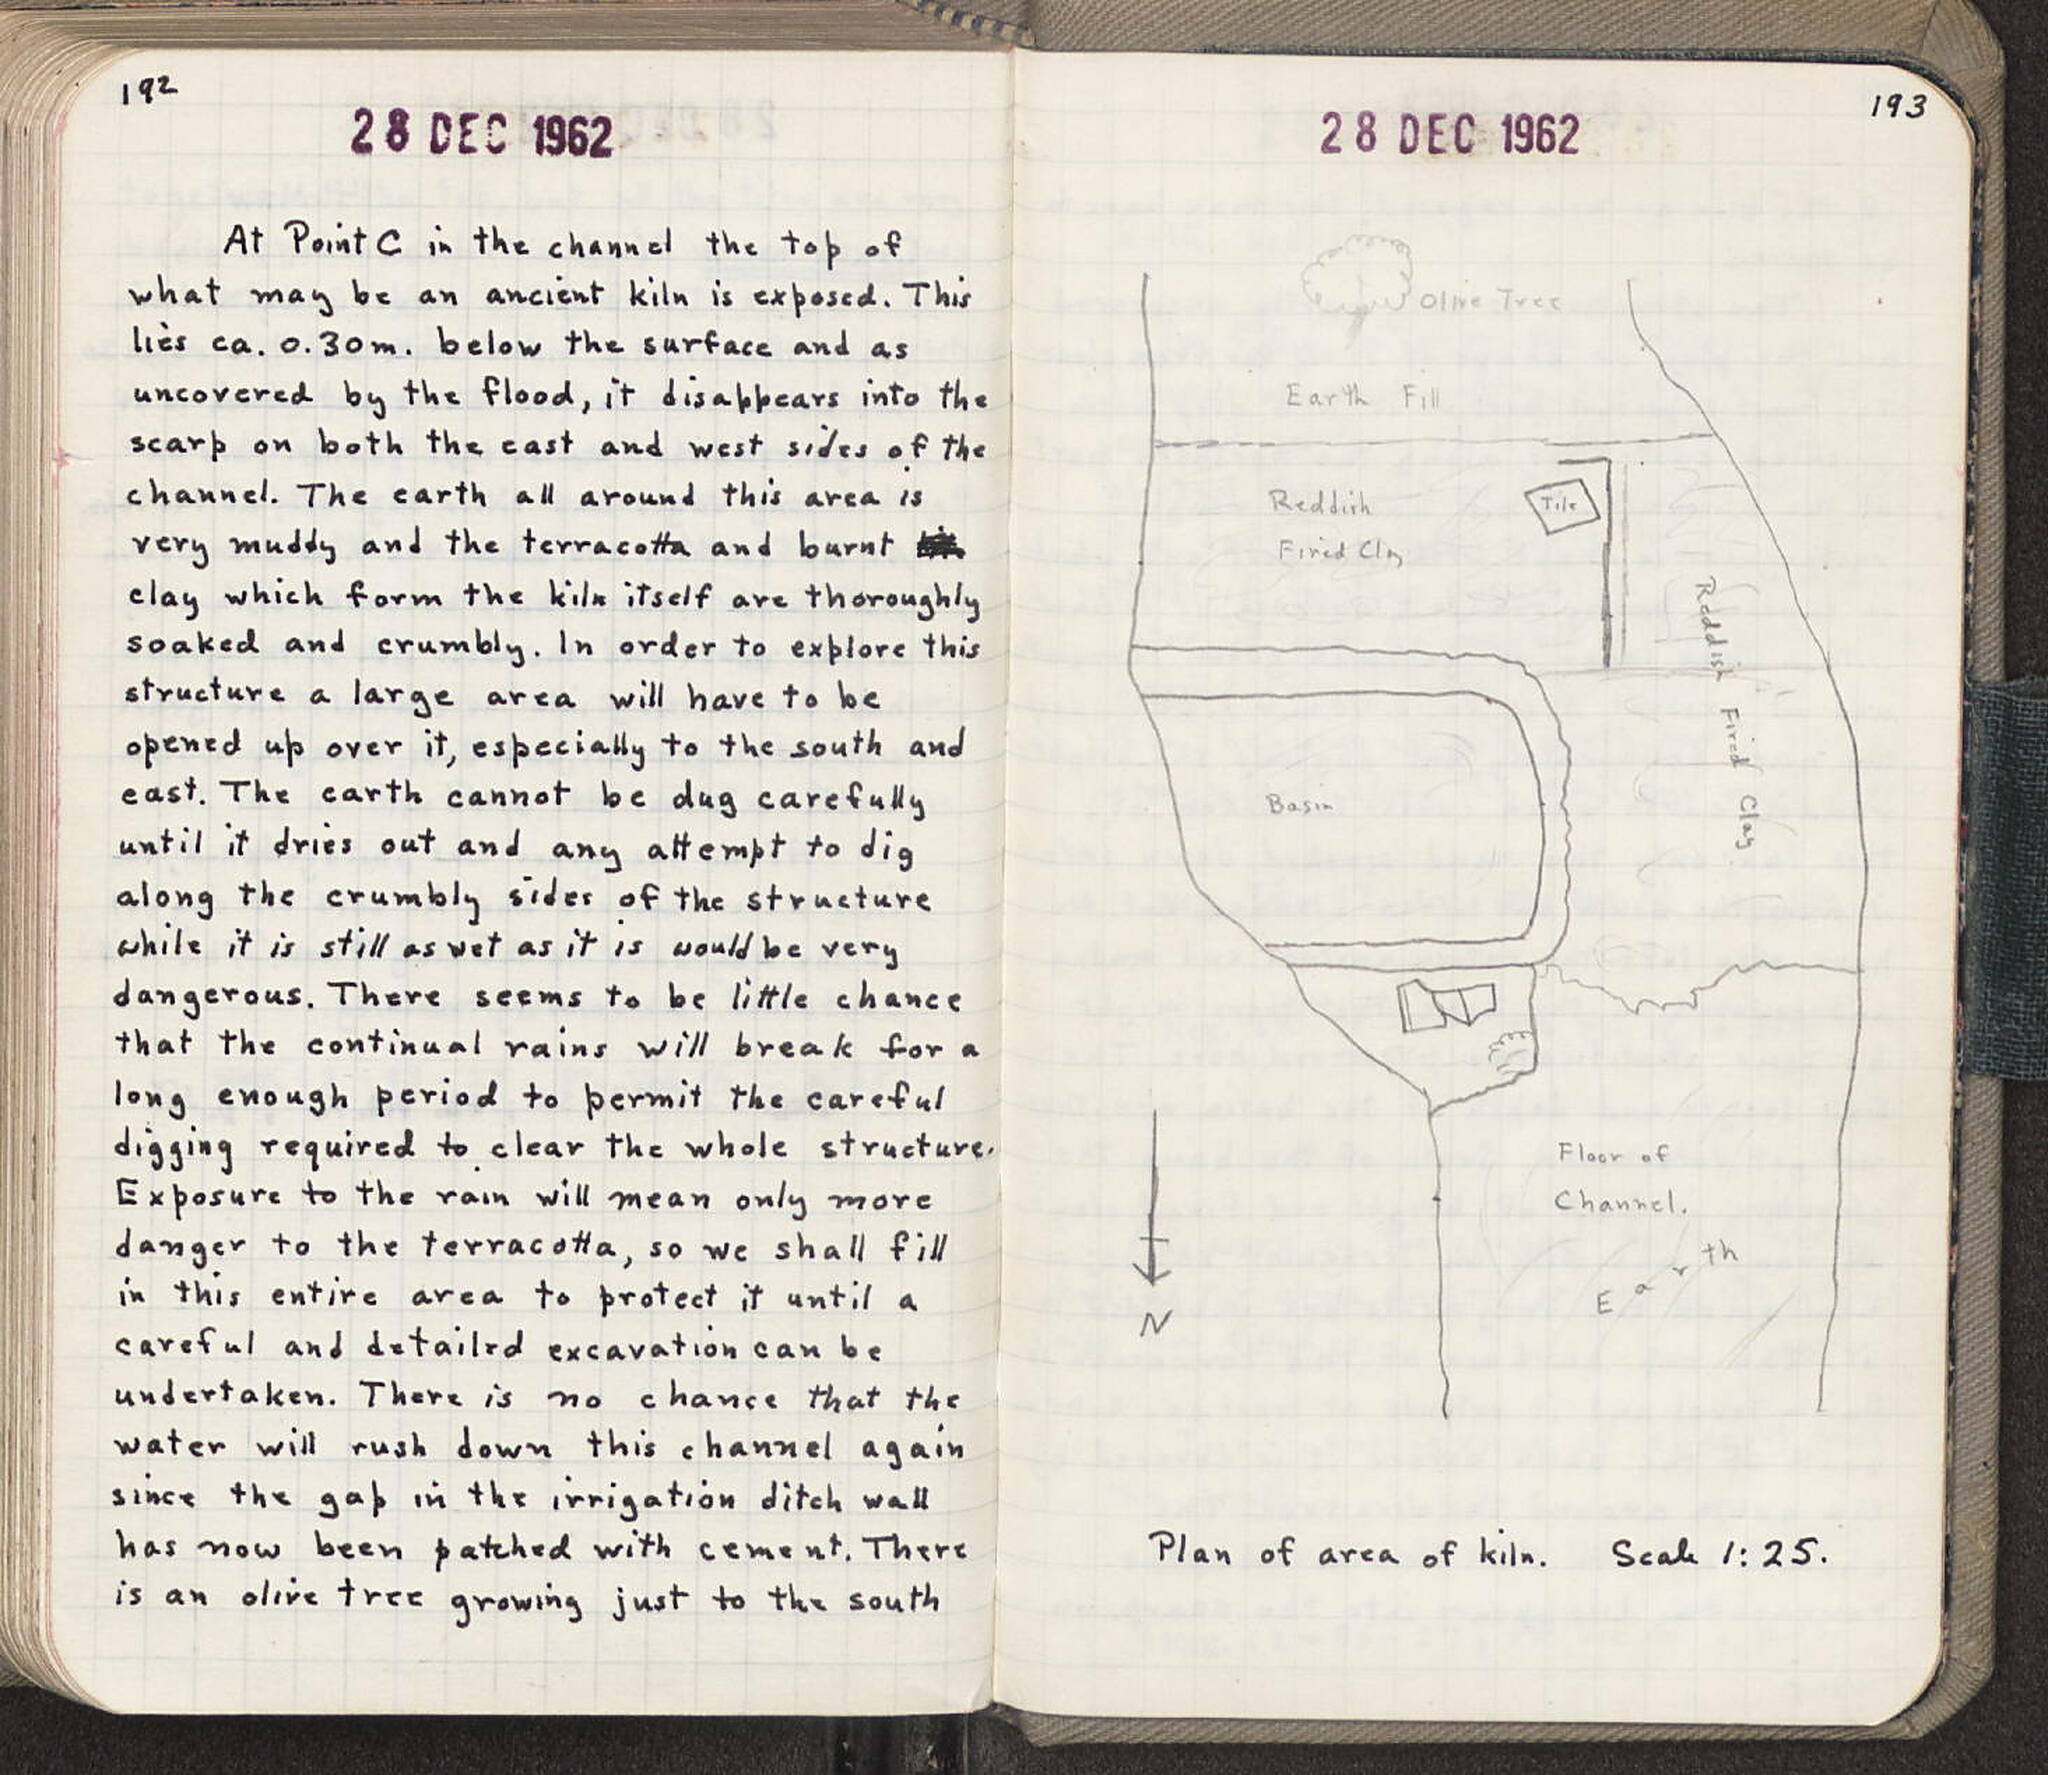 192
28 DEC 1962
At Point C in the channel the top of
what may be an ancient kiln is exposed. This
lies ca. 0.30m. below the surface and as
uncovered by the flood, it disappears into the
scarp on both the east and west sides of the
channel. The earth all around this area is
very muddy and the terracotta and burnt
clay which form the kiln itself are thoroughly
soaked and crumbly. In order to explore this
structure a large area will have to be
opened up over it, especially to the south and
east. The earth cannot be dug carefully
until it dries out and any attempt to dig
along the crumbly sides of the structure
while it is still as wet as it is would be very
dangerous. There seems to be little chance
that the continual rains will break for a
long enough period to permit the careful
digging required to clear the whole structure.
Exposure to the rain will mean only more
danger to the terracotta, so we shall fill
in this entire area to protect it until a
careful and detailed excavation can be
undertaken. There is no chance that the
water will rush down this channel again
since the gap in the irrigation ditch wall
has now been patched with cement. There
is an olive tree growing just to the south
193
28 DEC 1962
Olive Tree
Earth Fill
Reddish
Fired Clay
Tile
Reddish Fired Clay
Basin
Floor of
Channel.
Earth
N
Plan of area of kiln. Scale 1:25.